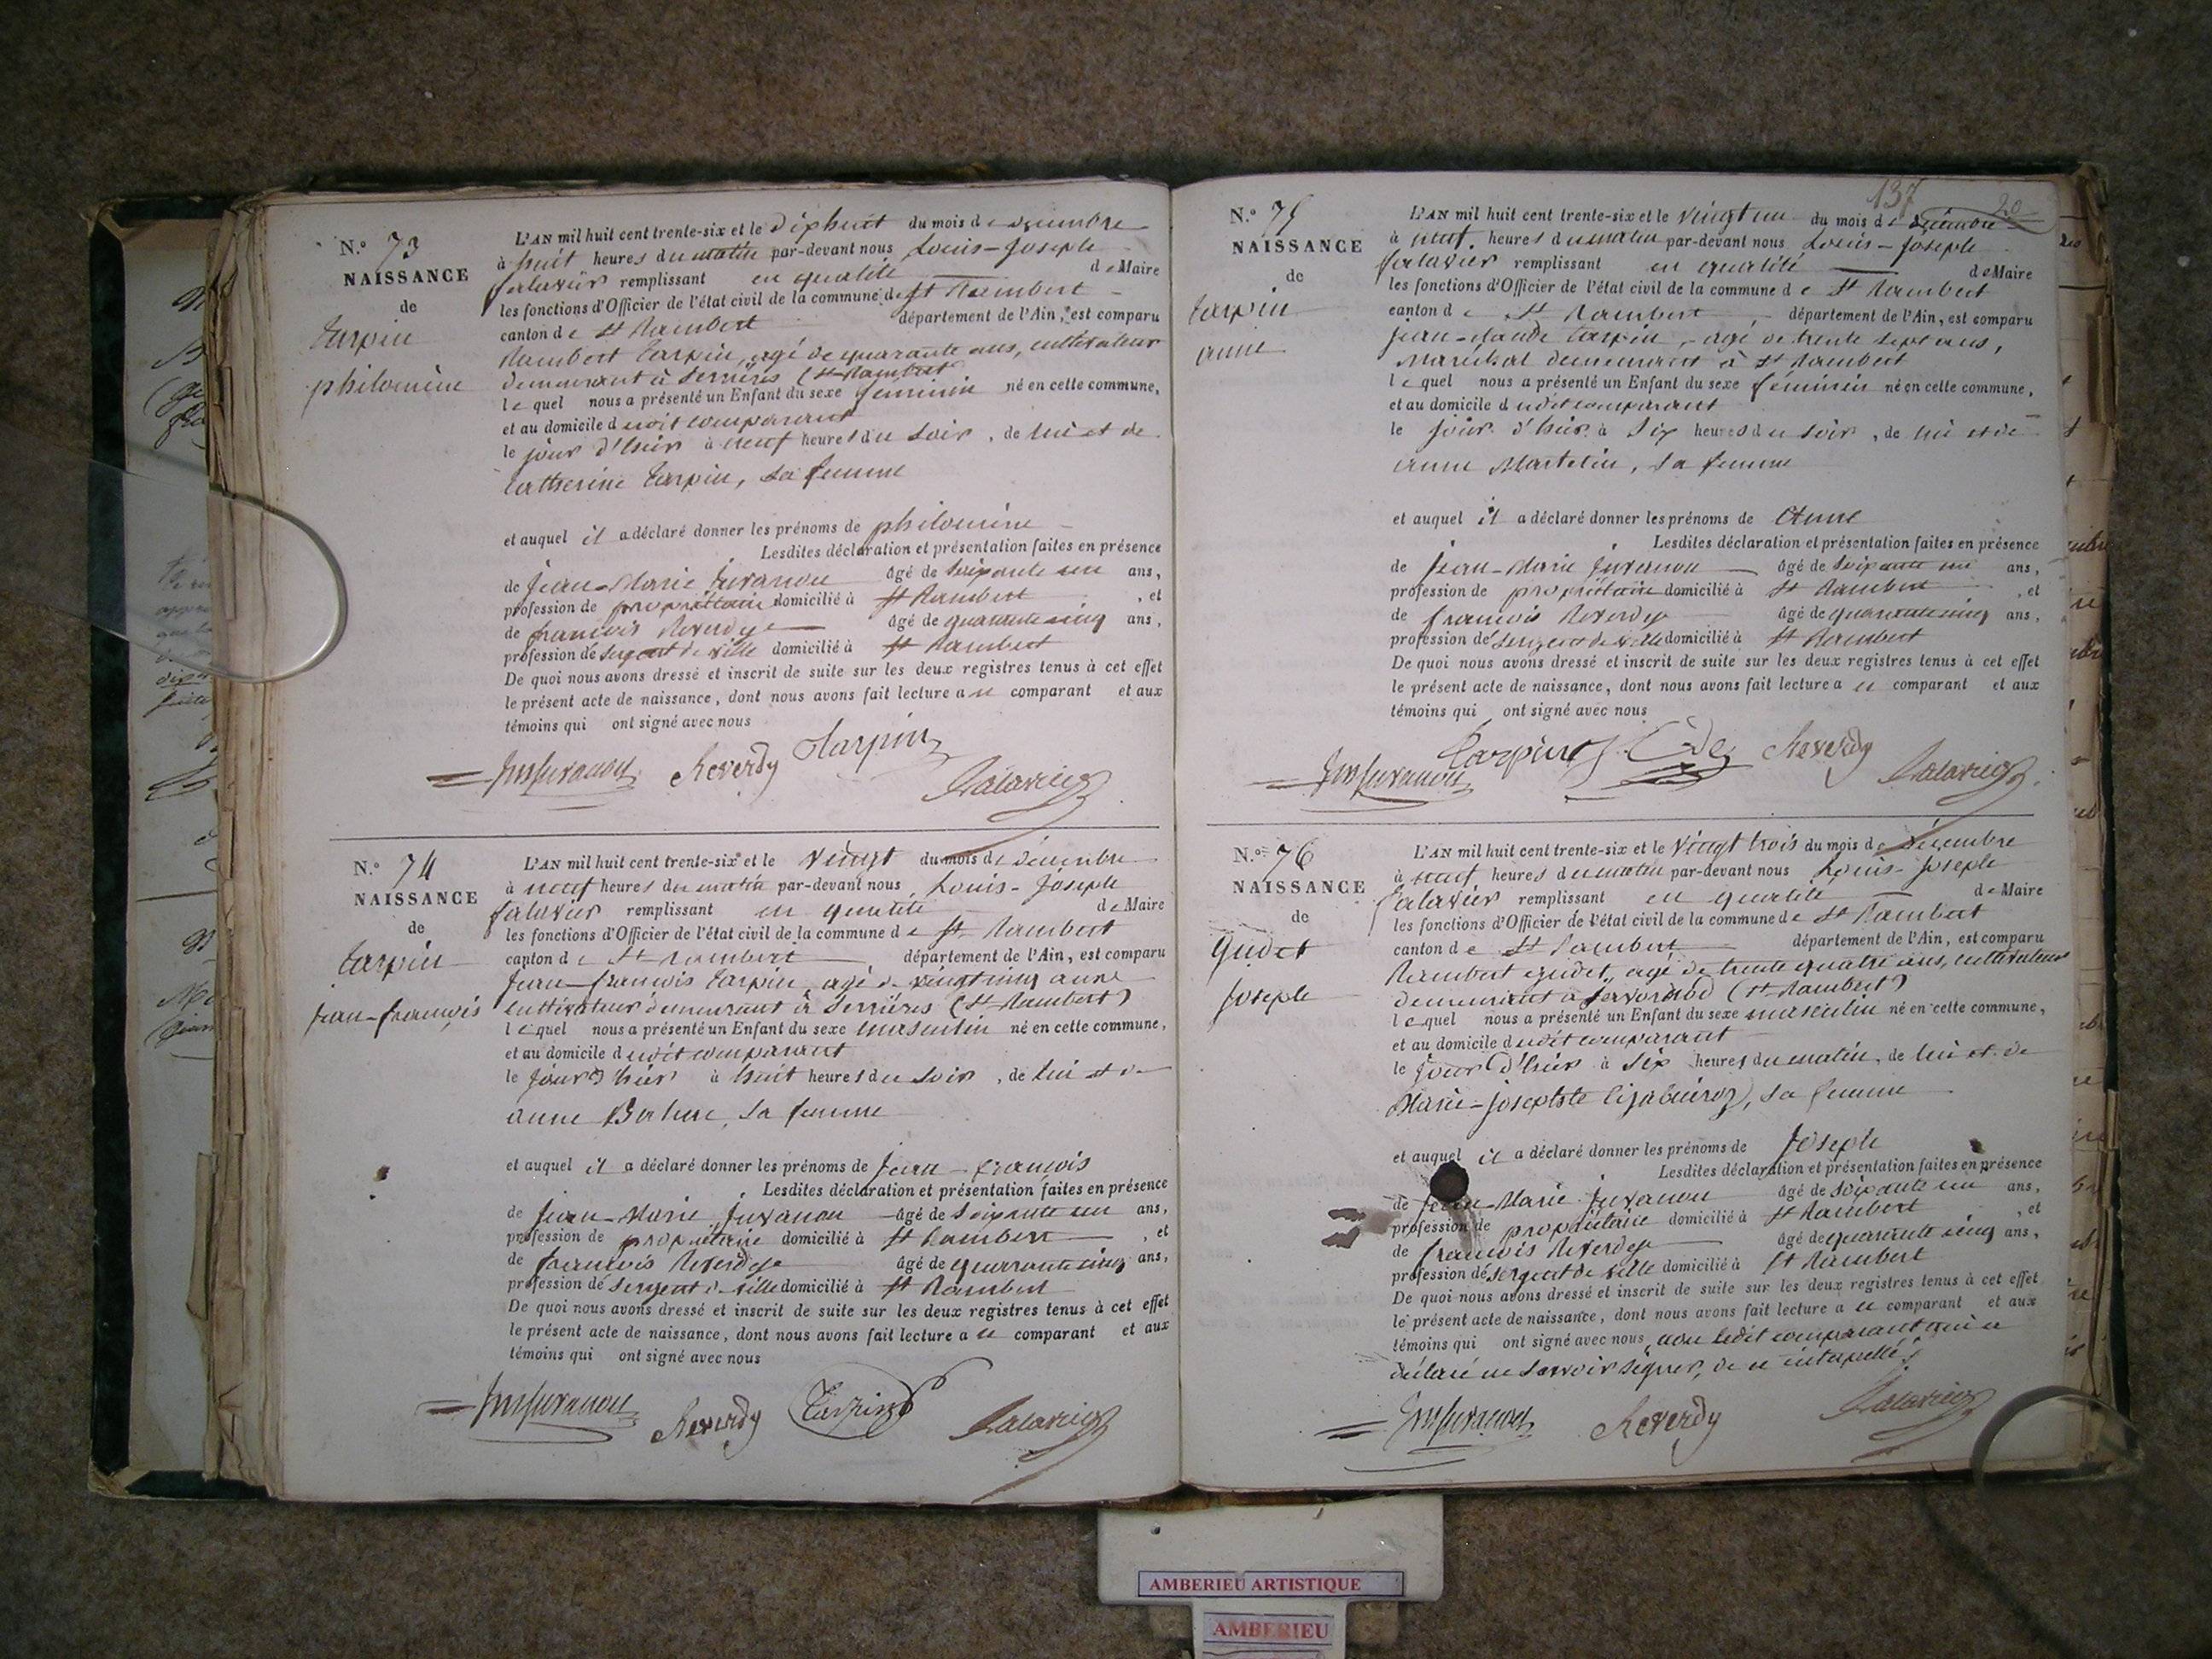 N.° 73
NAISSANCE
de
tarpin
philomène
L'AN mil huit cent trente-six et le dixhuit du mois de décembre
à huit heures du matin par-devant nous Louis-Joseph
falavier remplissant en qualité de Maire
les fonctions d'Officier de l'état civil de la commune de St Rambert
canton de St Rambert département de l'Ain, est comparu
Rambert tarpin, agé de quarante ans, cultivateur
demeurant à Serrières (St Rambert
lequel nous a présenté un Enfant du sexe féminin né en cette commune,
et au domicile dudit comparant
le jour d'hier à neuf heures du soir, de lui et de
Catherine tarpin, sa femme
et auquel il a déclaré donner les prénoms de philomène
Lesdites déclaration et présentation faites en présence
de Jean-Marie Juvanon âgé de soixante un ans,
profession de propriétaire domicilié à St Rambert, et
de françois Reverdy âgé de quarante cinq ans,
profession de sergent de ville domicilié à St Rambert
De quoi nous avons dressé et inscrit de suite sur les deux registres tenus à cet effet
le présent acte de naissance, dont nous avons fait lecture au comparant et aux
témoins qui ont signé avec nous
Jm Juvanon Reverdy tarpin
falavier
N.° 74
NAISSANCE
de
tarpin
jean-françois
L'AN mil huit cent trente-six et le vingt du mois de décembre
à neuf heures du matin par-devant nous Louis-Joseph
falavier remplissant en qualité de Maire
les fonctions d'Officier de l'état civil de la commune de St Rambert
canton de St Rambert département de l'Ain, est comparu
Jean-françois tarpin, agé de vingt cinq ans
cultivateur demeurant à Serrières (St Rambert)
lequel nous a présenté un Enfant du sexe masculin né en cette commune,
et au domicile dudit comparant
le jour d'hier à huit heures du soir, de lui et de
anne, sa femme
et auquel il a déclaré donner les prénoms de Jean-françois
Lesdites déclaration et présentation faites en présence
de Jean-Marie Juvanon âgé de soixante un ans,
profession de propriétaire domicilié à St Rambert, et
de françois Reverdy âgé de quarante cinq ans,
profession de sergent de ville domicilié à St Rambert
De quoi nous avons dressé et inscrit de suite sur les deux registres tenus à cet effet
le présent acte de naissance, dont nous avons fait lecture au comparant et aux
témoins qui ont signé avec nous
Jm Juvanon Reverdy Tarpin falavier
137 20
N.° 75
NAISSANCE
de
tarpin
anne
L'AN mil huit cent trente-six et le vingt un du mois de décembre
à neuf heures du matin par-devant nous Louis-Joseph
falavier remplissant en qualité de Maire
les fonctions d'Officier de l'état civil de la commune de St Rambert
canton de St Rambert département de l'Ain, est comparu
jean-claude tarpin, agé de trente sept ans,
Maréchal demeurant à St Rambert
lequel nous a présenté un Enfant du sexe féminin né en cette commune,
et au domicile dudit comparant
le jour d'hier à six heures du soir, de lui et de
anne Martelin, sa femme
et auquel il a déclaré donner les prénoms de Anne
Lesdites déclaration et présentation faites en présence
de Jean-Marie Juvanon âgé de soixante un ans,
profession de propriétaire domicilié à St Rambert, et
de françois Reverdy âgé de quarante cinq ans,
profession de sergent de ville domicilié à St Rambert
De quoi nous avons dressé et inscrit de suite sur les deux registres tenus à cet effet
le présent acte de naissance, dont nous avons fait lecture au comparant et aux
témoins qui ont signé avec nous
Jm Juvanon Tarpin J. Cde Reverdy falavier
N.° 76
NAISSANCE
de
Gudet
Joseph
L'AN mil huit cent trente-six et le vingt trois du mois de décembre
à neuf heures du matin par-devant nous Louis-Joseph
falavier remplissant en qualité de Maire
les fonctions d'Officier de l'état civil de la commune de St Rambert
canton de St Rambert département de l'Ain, est comparu
Rambert gudet, agé de trente quatre ans, cultivateur
demeurant à Javornod (St Rambert)
lequel nous a présenté un Enfant du sexe masculin né en cette commune,
et au domicile dudit comparant
le jour d'hier à six heures du matin, de lui et de
Marie-josephte, sa femme
et auquel il a déclaré donner les prénoms de Joseph
Lesdites déclaration et présentation faites en présence
de Jean-Marie Juvanon âgé de soixante un ans,
profession de propriétaire domicilié à St Rambert, et
de françois Reverdy âgé de quarante cinq ans,
profession de sergent de ville domicilié à St Rambert
De quoi nous avons dressé et inscrit de suite sur les deux registres tenus à cet effet
le présent acte de naissance, dont nous avons fait lecture au comparant et aux
témoins qui ont signé avec nous, non ledit comparant qui a
déclaré ne savoir signer, de ce interpellé.
Jm Juvanon Reverdy falavier
AMBERIEU ARTISTIQUE
AMBERIEU